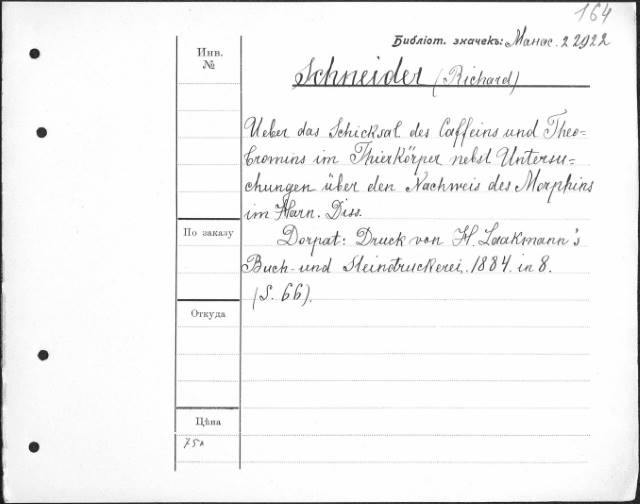 164
Библіот. значекъ: Манас. 2 2922
Инв.
№
Schneider (Richard)
Ueber das Schicksal des Caffeins und Theo-
bromins im Thierkörper nebst Untersu-
chungen über den Nachweis des Morphins
im Harn. Diss.
По заказу
Dorpat: Druck von H. Laakmann's
Buch- und Steindruckerei. 1884. in 8.
(S. 66).
Откуда
Цѣна